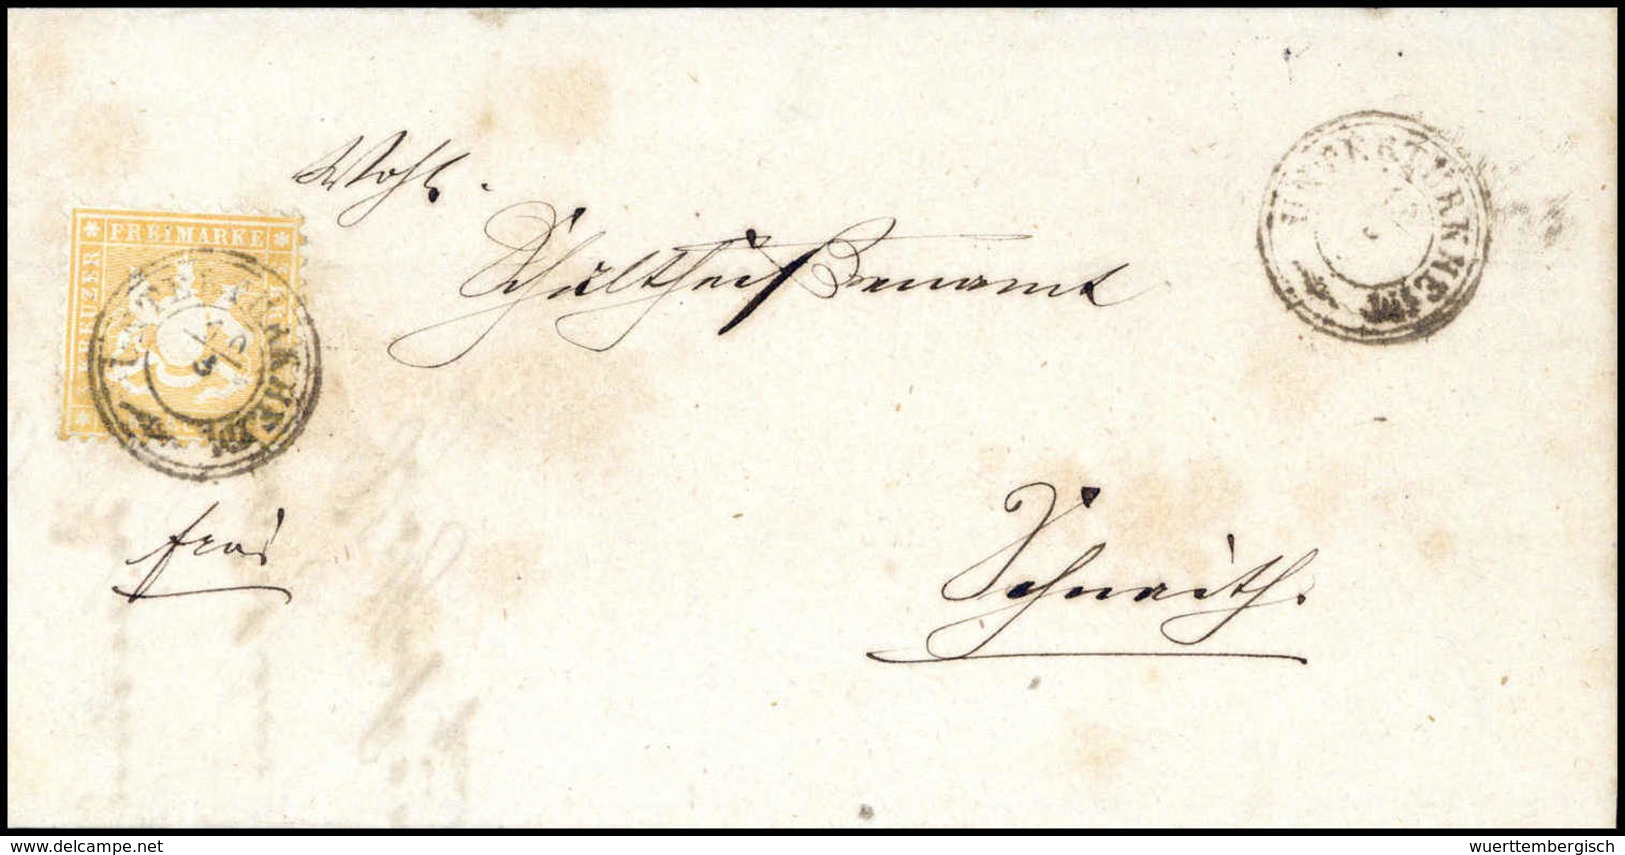 Wohl.
Schultheißenamt
Schnaith.
frei
FREIMARKE
KREUZER
UNTERTÜRKHEIM
UNTERTÜRKHEIM
delcampe.net
wuerttembergisch